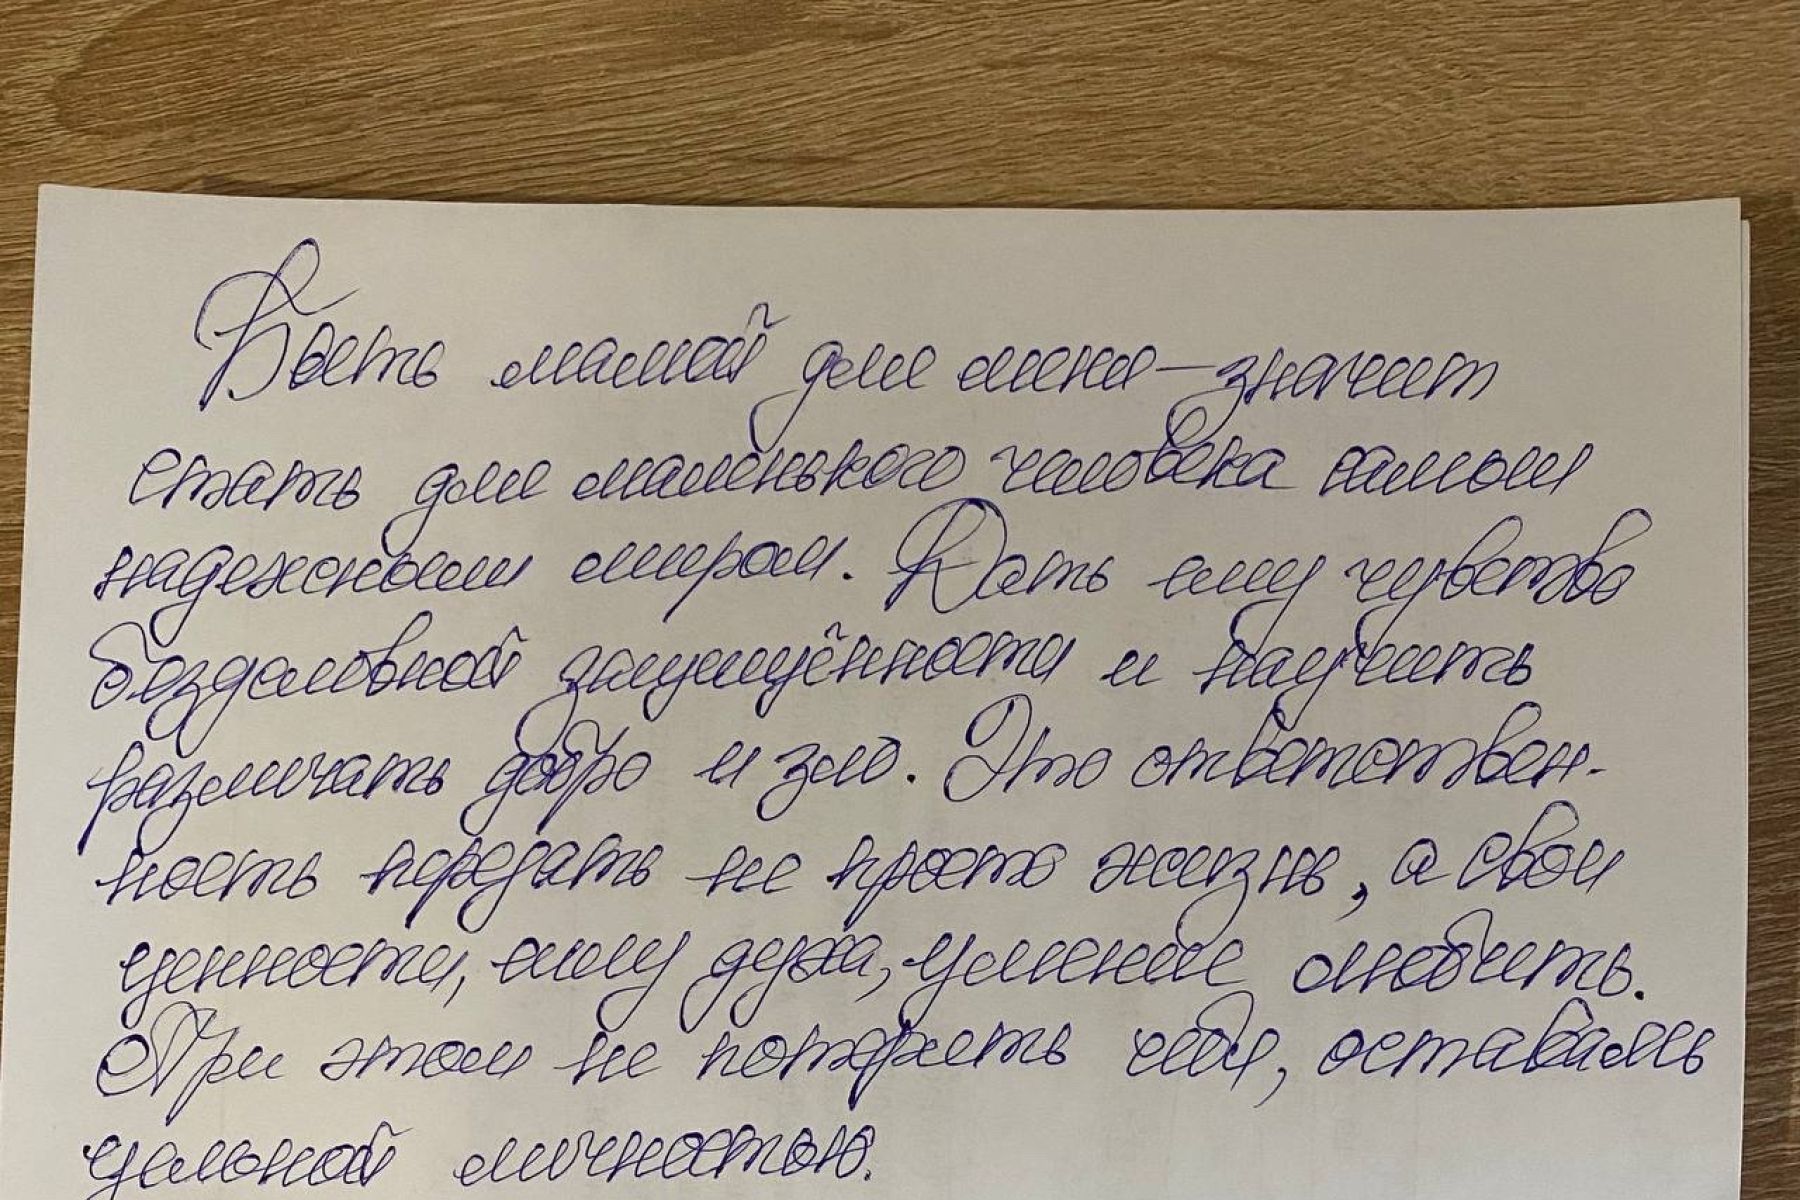 Быть мамой для меня – значит
стать для маленького человека самым
надежным миром. Дать ему чувство
безусловной защищённости и научить
различать добро и зло. Это ответствен-
ность передать не просто жизнь, а свои
ценности, силу духа, умение любить.
При этом не потерять себя, оставаясь
цельной личностью.